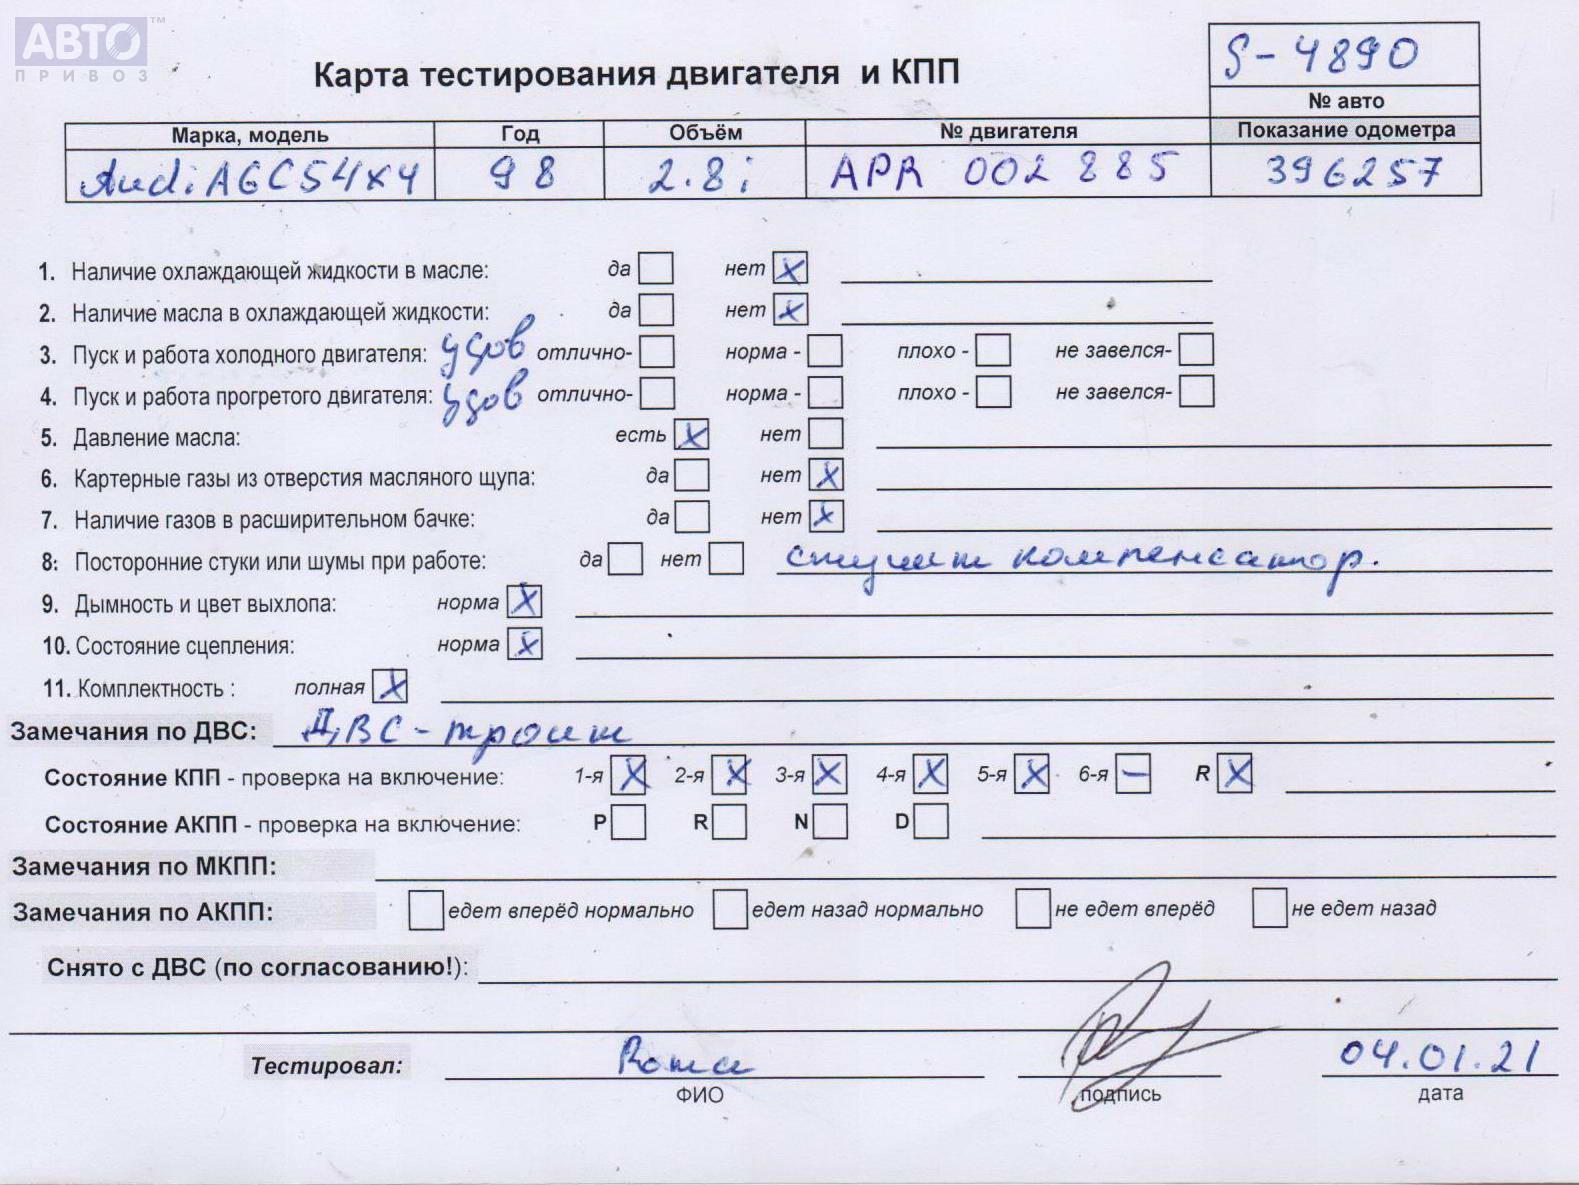 АВТО™
ПРИВОЗ
S-4890
Карта тестирования двигателя и КПП
№ авто
Марка, модель Год Объём № двигателя Показание одометра
Audi A6C5 4x4 98 2.8i APR 002 885 396257
1. Наличие охлаждающей жидкости в масле: да нет X
2. Наличие масла в охлаждающей жидкости: да нет X
3. Пуск и работа холодного двигателя: удов отлично- норма - плохо - не завелся-
4. Пуск и работа прогретого двигателя: удов отлично- норма - плохо - не завелся-
5. Давление масла: есть X нет
6. Картерные газы из отверстия масляного щупа: да нет X
7. Наличие газов в расширительном бачке: да нет X
8: Посторонние стуки или шумы при работе: да нет стучит компенсатор.
9. Дымность и цвет выхлопа: норма X
10. Состояние сцепления: норма X
11. Комплектность : полная X
Замечания по ДВС: ДВС - троит
Состояние КПП - проверка на включение: 1-я X 2-я X 3-я X 4-я X 5-я X 6-я – R X
Состояние АКПП - проверка на включение: P R N D
Замечания по МКПП:
Замечания по АКПП: едет вперёд нормально едет назад нормально не едет вперёд не едет назад
Снято с ДВС (по согласованию!):
Тестировал: Рома 04.01.21
ФИО подпись дата